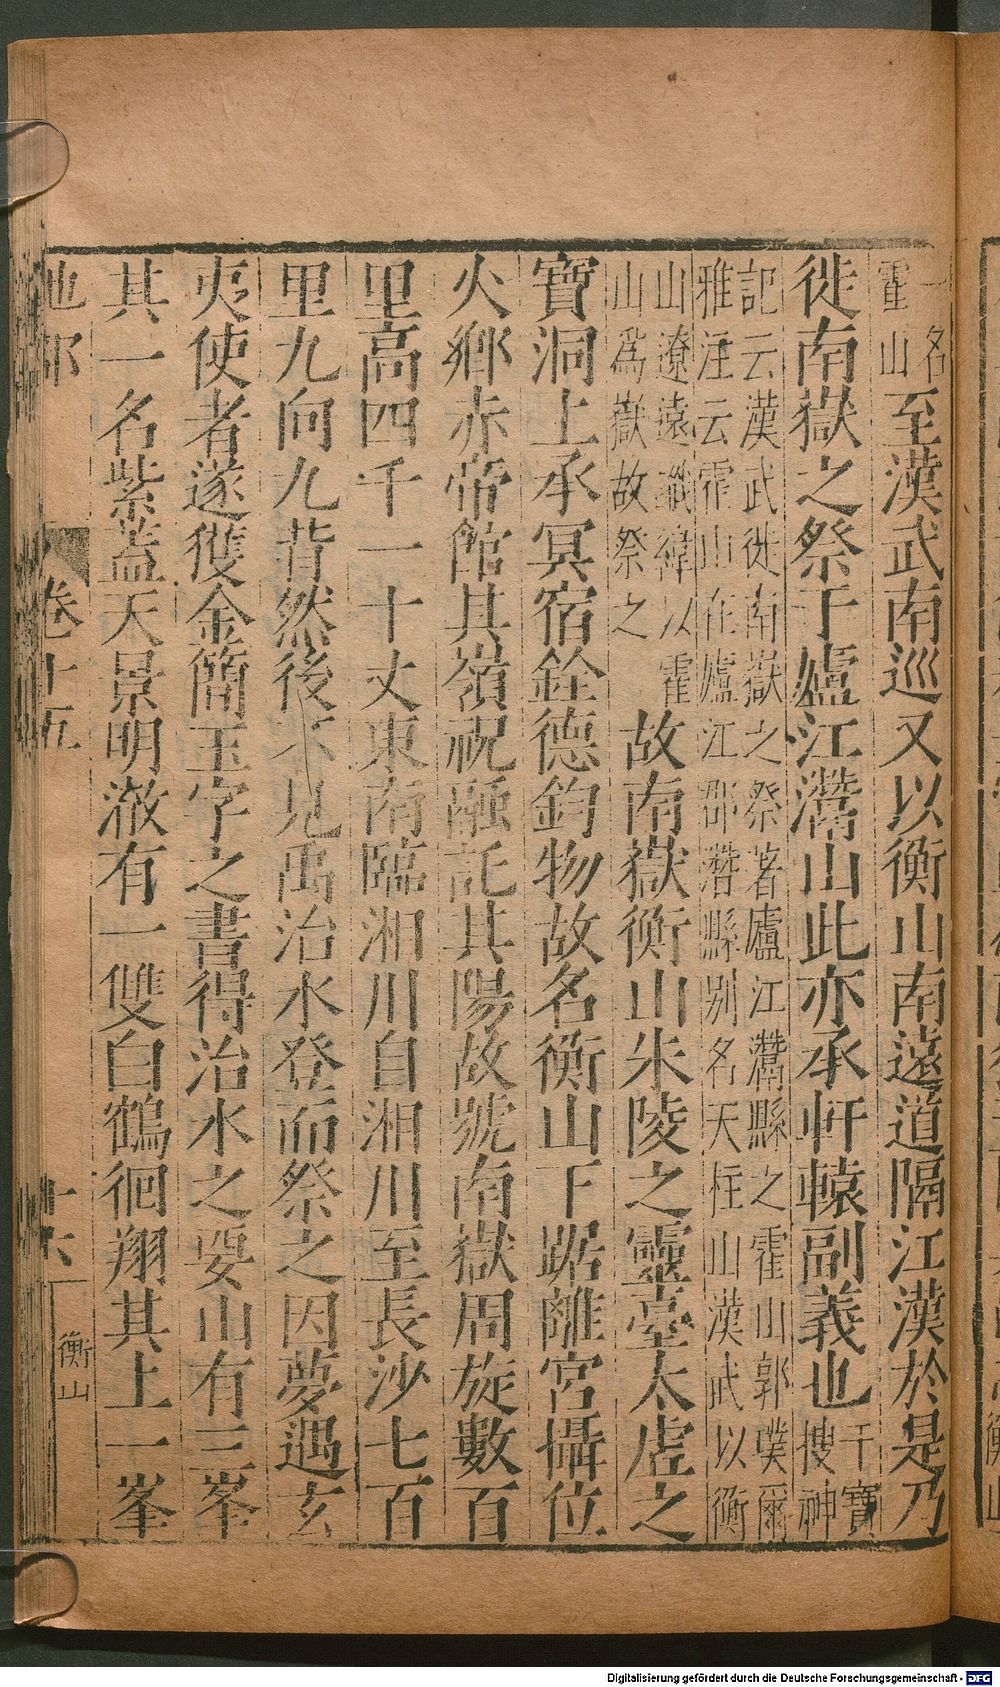 一名霍山至漢武南巡又以衡山南遠道隔江漢於是乃
徙南嶽之祭于廬江灊山此亦承軒轅副義也干寶搜神
記云漢武徙南嶽之祭著廬江灊縣之霍山郭璞爾
雅注云霍山在廬江郡灊縣別名天柱山漢武以衡
山遼遠讖緯以霍
山爲嶽故祭之
故南嶽衡山朱陵之靈臺太虛之
寶洞上承冥宿銓德鈞物故名衡山下踞離宮攝位
火鄉赤帝館其嶺祝融託其陽故號南嶽周旋數百
里高四千一十丈東南臨湘川自湘川至長沙七百
里九向九背然後不見禹治水登而祭之因夢遇玄
夷使者遂獲金簡玉字之書得治水之要山有三峯
其一名紫蓋天景明澈有一雙白鶴徊翔其上一峯
地部
卷十五
十六
衡山
Digitalisierung gefördert durch die Deutsche Forschungsgemeinschaft - DFG